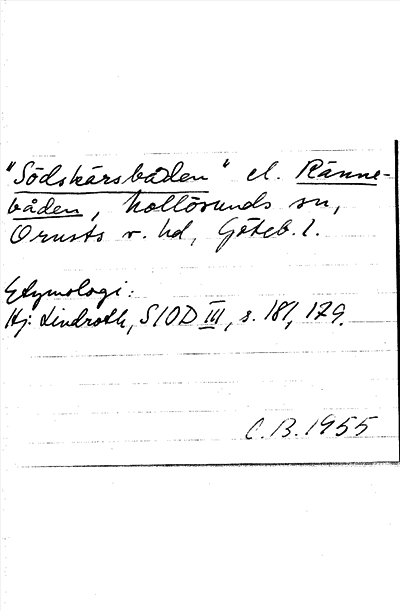 "Södskärsbåden" el. Ränne-
båden, Mollösunds sn,
Orusts v. hd, Göteb. l.
Etymologi:
Hj. Lindroth, SIOD III, s. 181, 179.
C.B. 1955